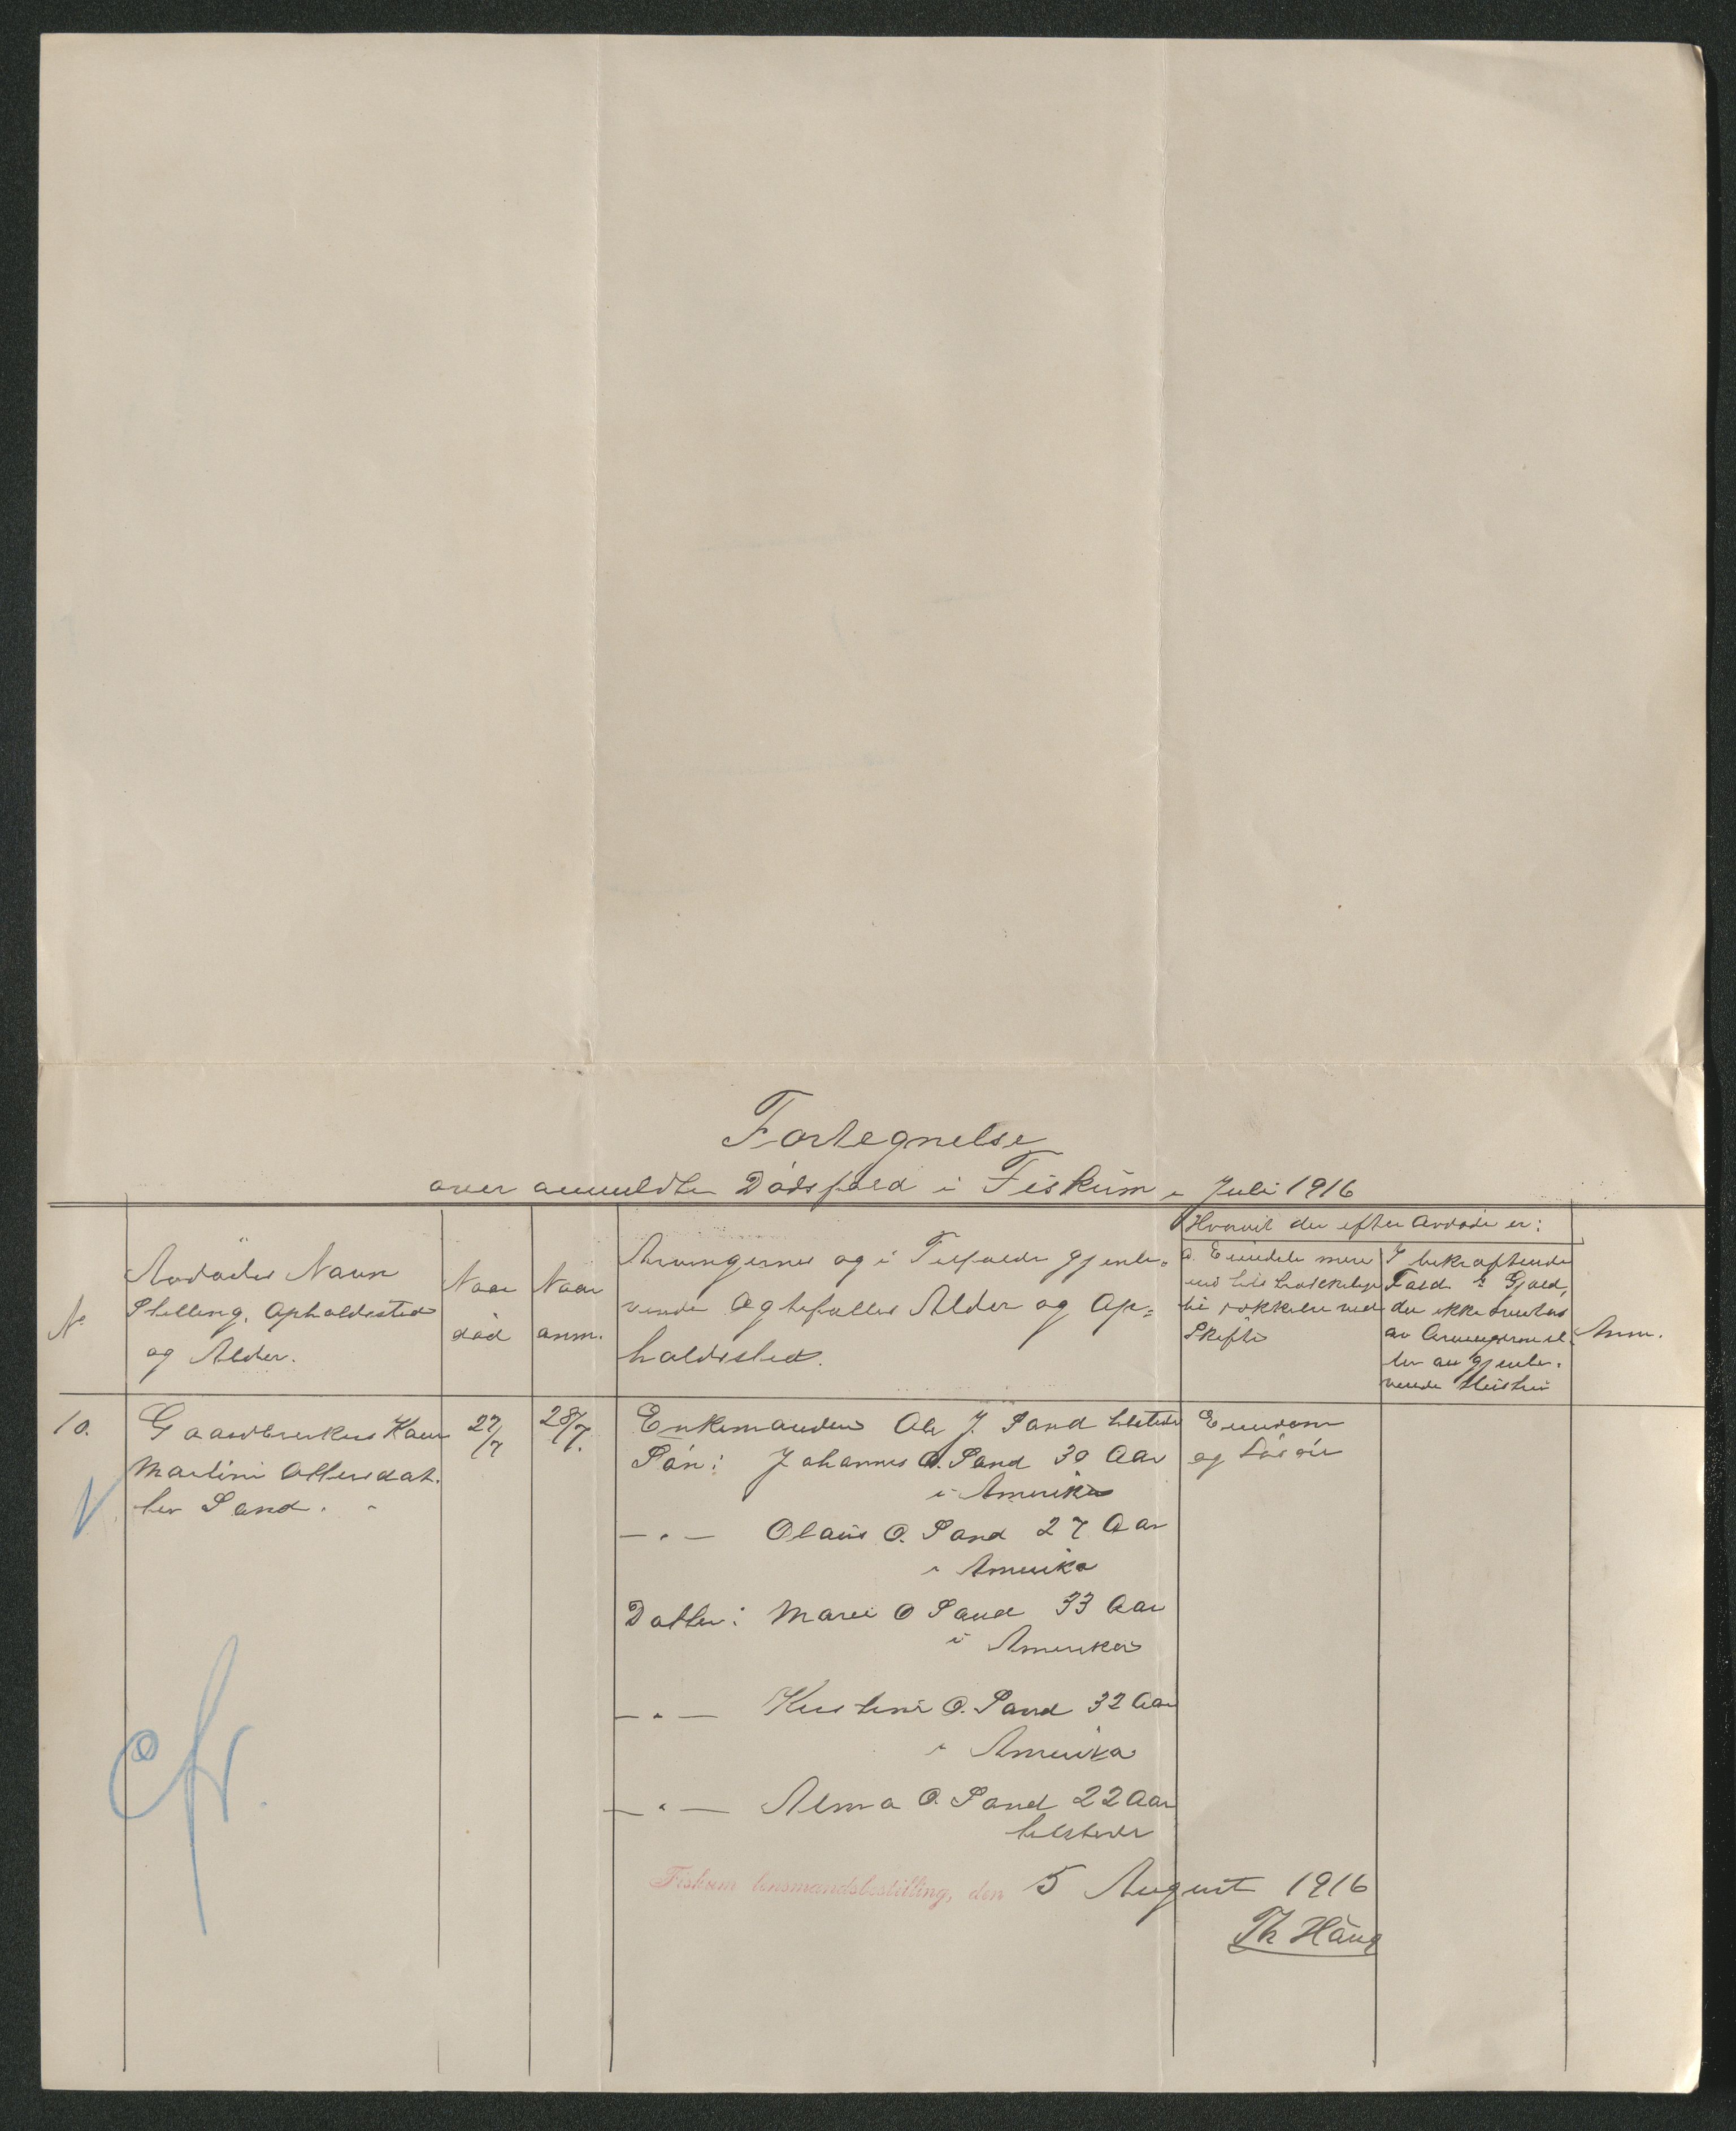 Fortegnelse
over anmeldte Dødsfald i Fiskum i Juli 1916
No
Avdødes Navn
Stilling, Opholdssted
og Alder.
Naar
død
Naar
anm.
Arvingernes og i Tilfælde gjenle-
vende Ægtefælles Alder og Op-
holdssted.
Hvorvit der efter Avdøde er:
a. Eiendele mere
end
Skifte
I bekræftende
Fald : Gjæld,
der ikke
av Arvingerne el-
ler av gjenle-
vende
Anm.
10.
Gaardbrukers Kone
Martine Ottersdat-
ter Sand.
27/7
28/7.
Enkemanden Ole J. Sand tilstede
Søn: Johannes O. Sand 30 Aar
i Amerika
— " — Olaus O. Sand 27 Aar
i Amerika
Datter: Marie O Sand 33 Aar
i Amerika
— " — Kristine O. Sand 32 Aar
i Amerika
— " — Alma O. Sand 22 Aar
tilstede
Eiendom
og Løsøre
cfr.
Fiskum lensmandsbestilling, den 5 August 1916
Th Haug